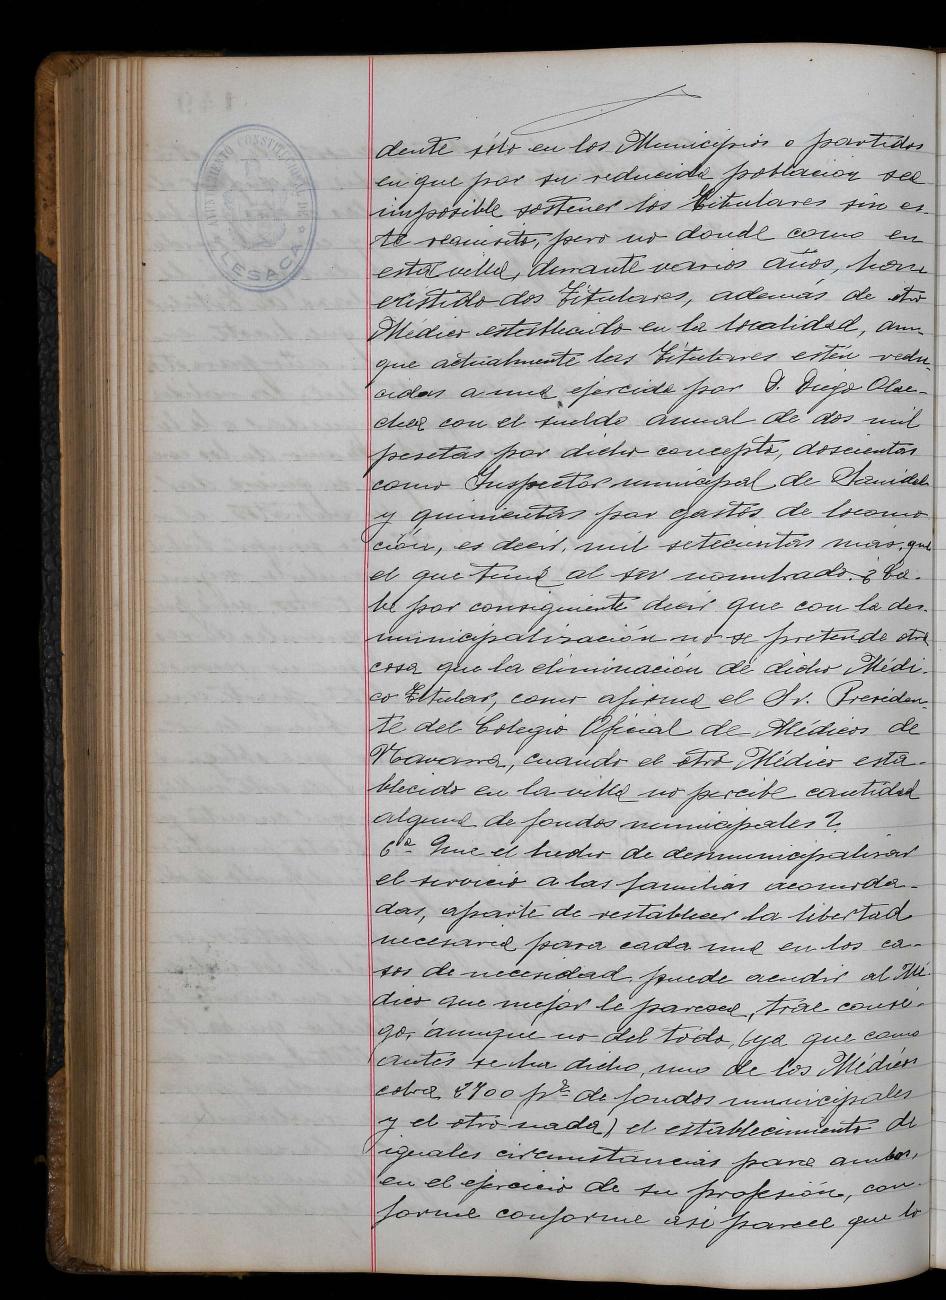 AYUNTAMIENTO CONSTITUCIONAL DE
LESACA
dente sólo en los Municipios o partidos
en que por su reducida población sea
imposible sostener los titulares sin es-
te requisito, pero no donde como en
esta villa, durante varios años, han
existido dos Titulares, además de otro
Médico establecido en la localidad, aun-
que actualmente las Titulares estén redu-
cidas a una ejercida por D. Diego Olae-
chea con el sueldo anual de dos mil
pesetas por dicho concepto, doscientas
como Inspector municipal de Sanidad
y quinientas por gastos de locomo
ción, es decir, mil setecientas mas, que
el que tenia al ser nombrado. ¿Ca-
be por consiguiente decir que con la des-
municipalización no se pretende otra
cosa que la eliminación de dicho Médi-
co Titular, como afirma el Sr. Presiden-
te del Colegio Oficial de Médicos de
Navarra, cuando el otro Médico esta-
blecido en la villa no percibe cantidad
alguna de fondos municipales?
6º Que el hecho de desmunicipalizar
el servicio a las familias acomoda-
das, aparte de restablecer la libertad
necesaria para cada una en los ca-
sos de necesidad puede acudir al Mé-
dico que mejor le parezca, trae consi-
go, aunque no del todo, (ya que como
antes se ha dicho, uno de los Médicos
cobra 2700 pts de fondos municipales
y el otro nada) el establecimiento de
iguales circunstancias para ambos,
en el ejercicio de su profesión, con-
forme conforme así parece que lo